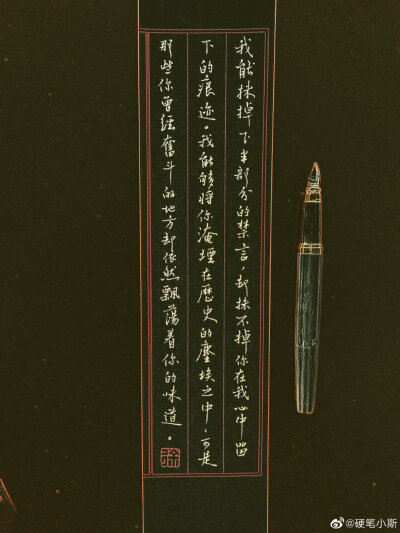 我能抹掉下半部分的禁言，却抹不掉你在我心中留
下的痕迹。我能够将你淹埋在歷史的塵埃之中，可是
那些你曾經奮斗的地方却依然飘蕩着你的味道。
@硬笔小斯